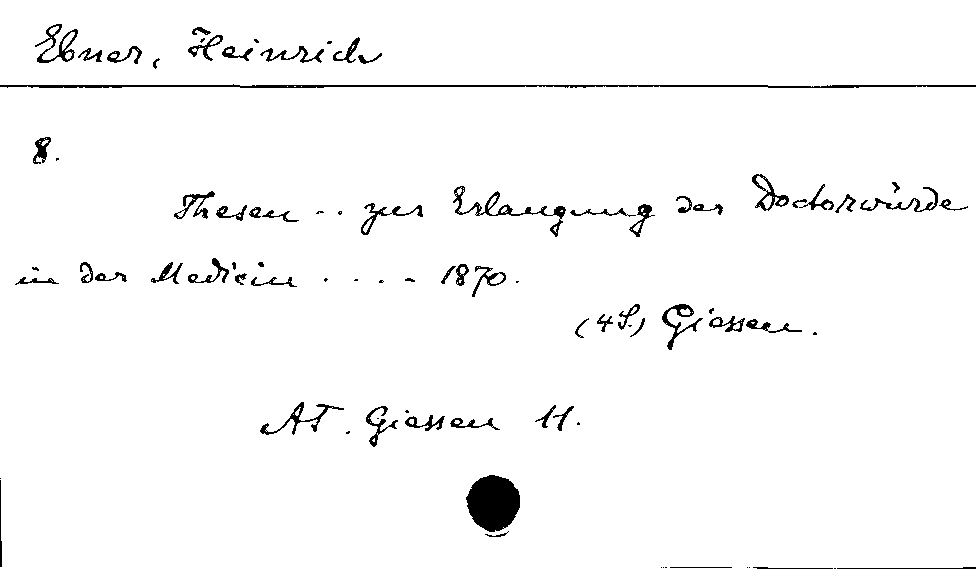 Ebner, Heinrich
8.
Thesen .. zur Erlangung der Doctorwürde
in der Medicin .... 1870.
(4 S.) Giessen.
AT. Giessen 11.